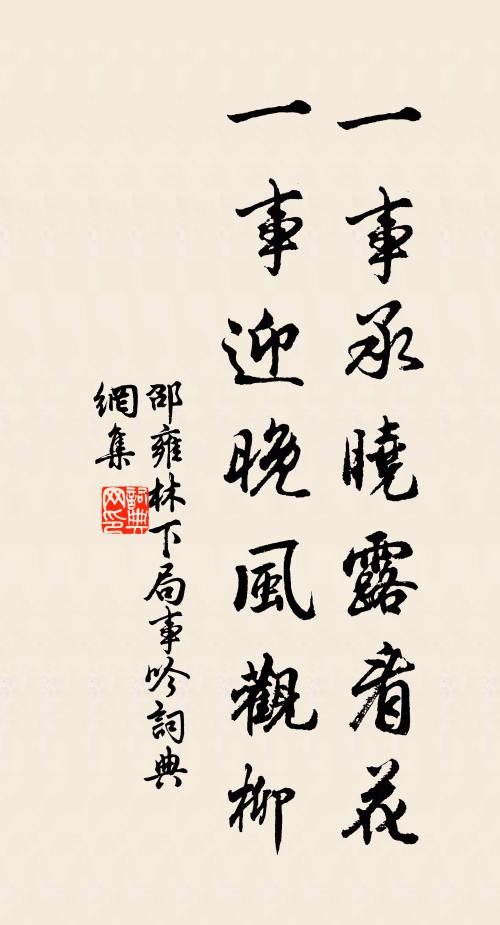 一事承曉露看花
一事迎晚風觀柳
邵雍林下局事吟詞典
網集
詞典
网印